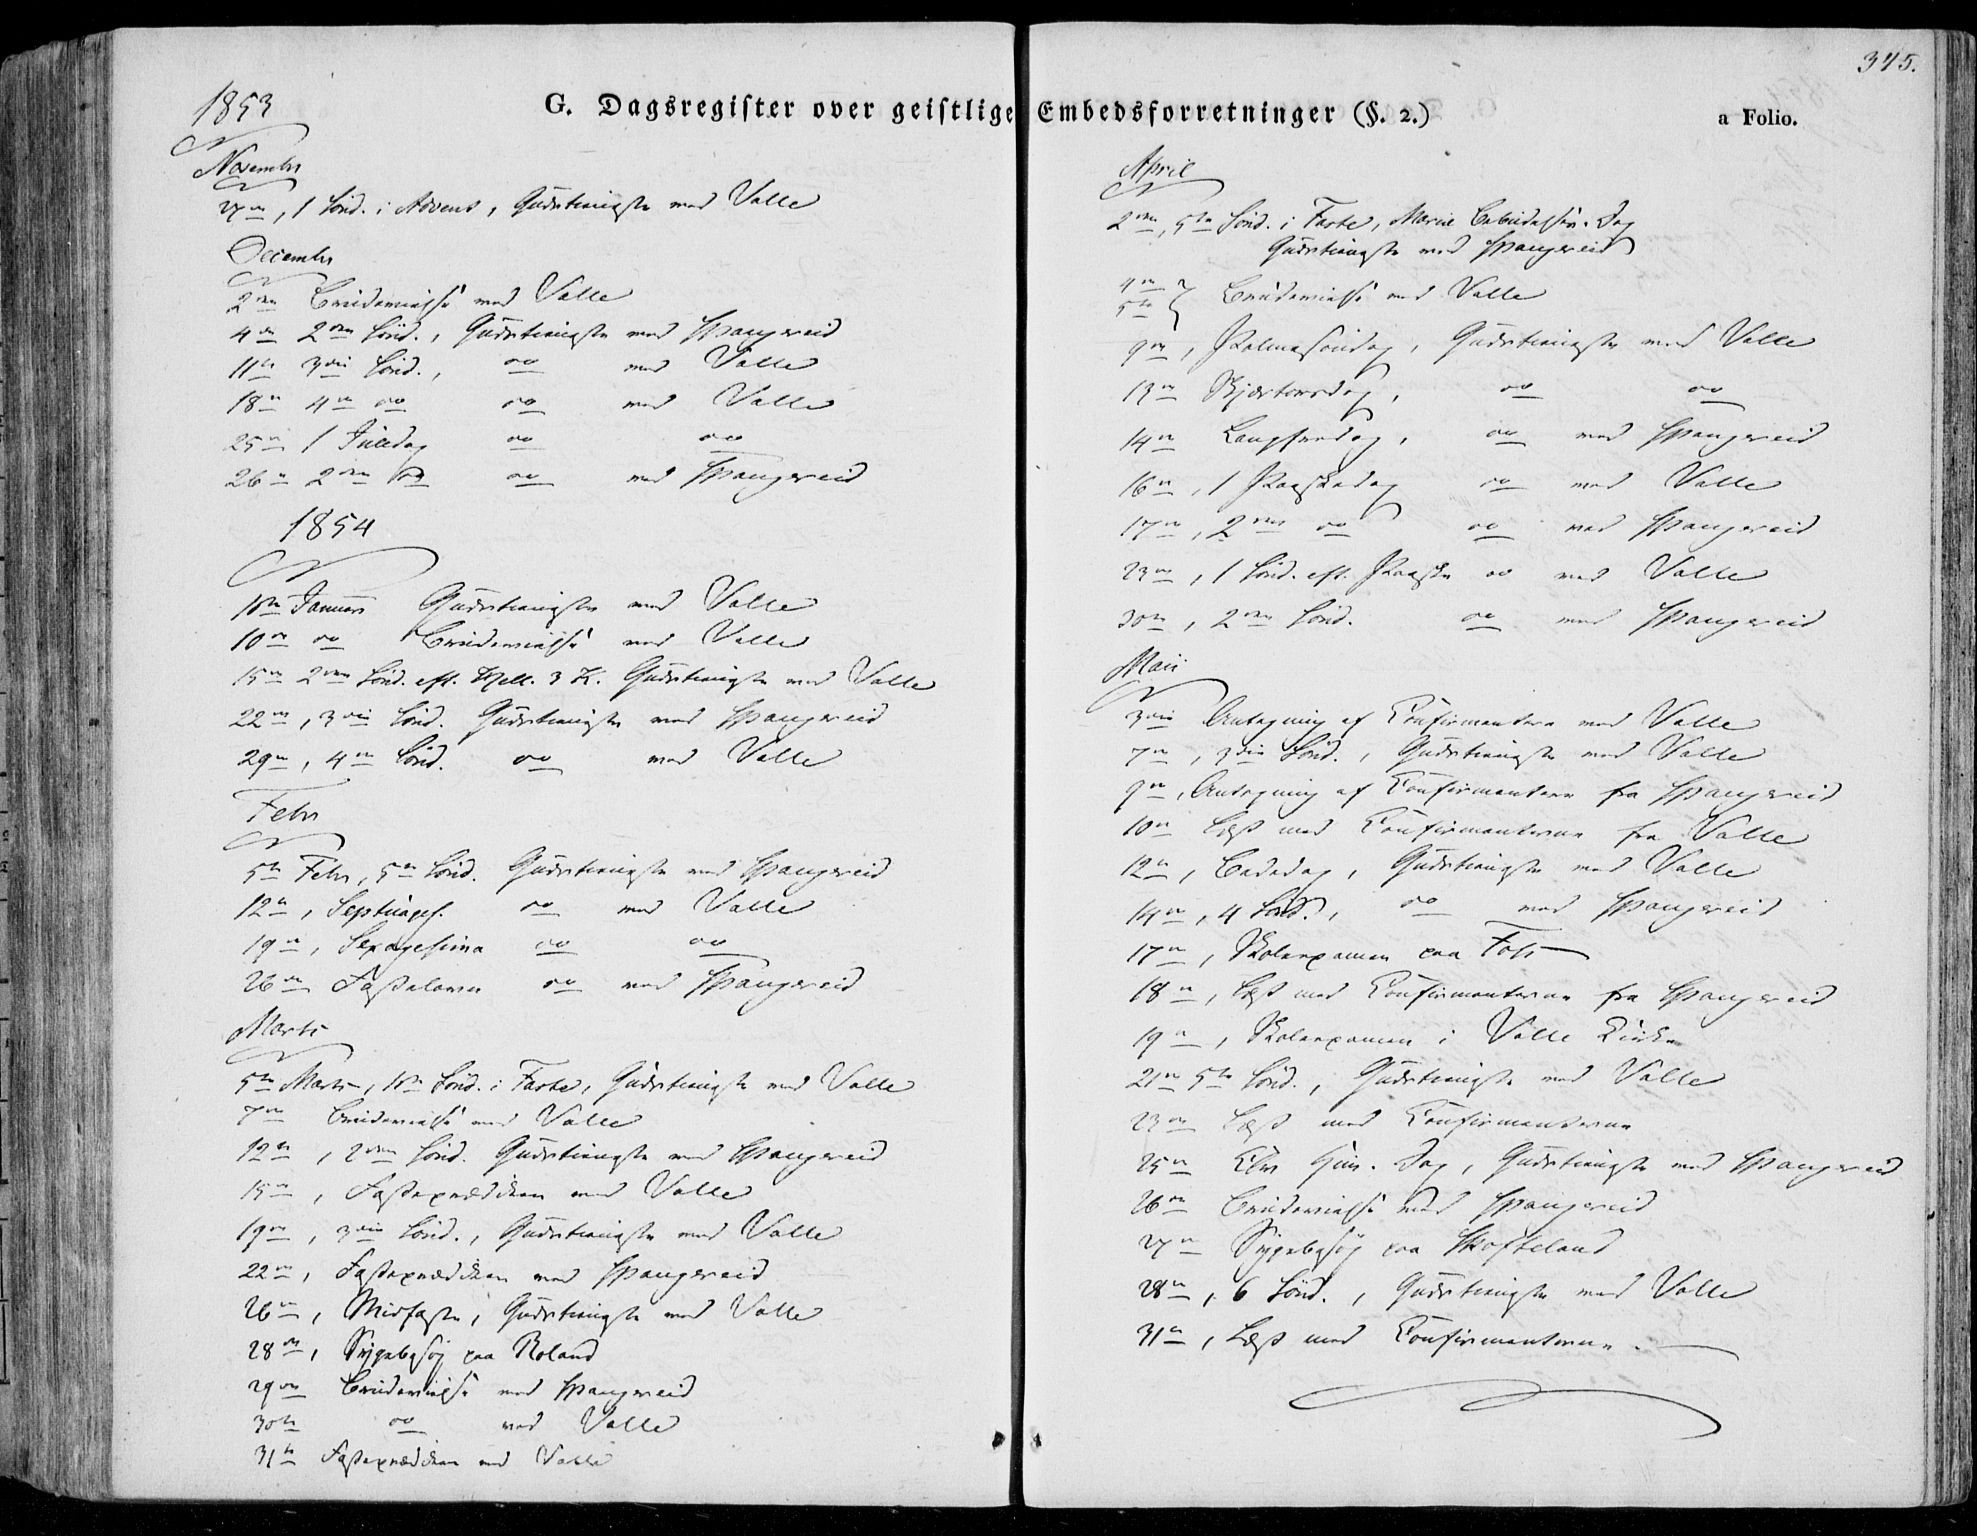 1853
G. Dagsregister over geistlige Embedsforretninger (§. 2.)
a Folio.
345.
Novembr
27de, 1 Sønd. i Advent, Gudstieneste ved Valle
Decembr
2den Brudevielse ved Valle
4de 2den Sønd., Gudstieneste ved Spangereid
11te 3die Sønd., do ved Valle
18de 4de do do ved Valle
25de 1 Juledag do do
26de 2den do do ved Spangereid
1854
1ste Januar Gudstieneste ved Valle
10de do Brudevielse ved Valle
15de 2den Sønd. eft. Hell. 3 K. Gudstieneste ved Valle
22de, 3die Sønd. Gudstieneste ved Spangereid
29de, 4de Sønd. do ved Valle
Febr
5te Febr, 5te Sønd. Gudstieneste ved Spangereid
12te, Septuages. do ved Valle
19de, Sexagesima do do
26de Fastelavn do ved Spangereid
Marts
5te Marts, 1ste Sønd. i Faste, Gudstieneste ved Valle
7de Brudevielse ved Valle
12te, 2den Sønd. Gudstieneste ved Spangereid
15de, Fasteprædiken ved Valle
19de, 3die Sønd., Gudstieneste ved Valle
22de, Fasteprædiken ved Spangereid
26de, Midfaste, Gudstieneste ved Valle
28de, Sygebesøg paa Roland
29de Brudevielse ved Spangereid
30te do ved Valle
31te Fasteprædiken ved Valle
April
2den, 5te Sønd. i Faste, Mariæ Bebudelses Dag
Gudstieneste ved Spangereid
4de
5te } Brudevielse ved Valle
9de, Palmesøndag, Gudstieneste ved Valle
13de Skjærtorsdag, do do
14de Langfredag, do ved Spangereid
16de, 1 Paaskedag do ved Valle
17de, 2den do do ved Spangereid
23de, 1 Sønd. eft. Paaske do ved Valle
30te, 2den Sønd. do ved Spangereid
Maii
3die Antegning af Confirmanterne ved Valle
7de, 3die Sønd., Gudstieneste ved Valle
9de, Antegning af Confirmanterne fra Spangereid
10de Læst med Confirmanterne fra Valle
12te, Bededag, Gudstieneste ved Valle
14de, 4 Sønd., do ved Spangereid
17de, Skoleexamen paa Foss
18de, Læst med Confirmanterne fra Spangereid
19de, Skoleexamen i Valle Kirke
21de 5te Sønd., Gudstieneste ved Valle
23de Læst med Confirmanterne
25de Chr Him. Dag, Gudstieneste ved Spangereid
26de Brudevielse ved Spangereid
27de Sygebesøg paa Skofteland
28de, 6 Sønd., Gudstieneste ved Valle
31te, Læst med Confirmanterne.